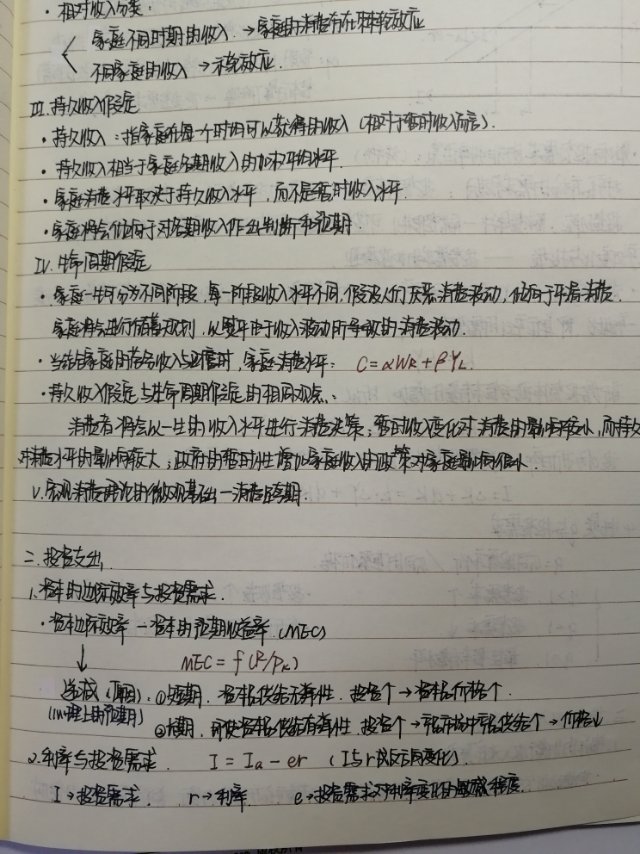 · 相对收入分类:
家庭不同时期的收入 → 家庭的消费存在棘轮效应
不同家庭的收入 → 示范效应.
III. 持久收入假定
· 持久收入：指家庭在每一个时期可以获得的收入 (相对于暂时收入而言).
· 持久收入相当于家庭各期收入的加权平均水平.
· 家庭消费水平取决于持久收入水平, 而不是暂时收入水平.
· 家庭将会倾向于对各期收入作出判断和预期.
IV. 生命周期假定
· 家庭一生可分为不同阶段, 每一阶段收入水平不同, 假设人们厌恶消费波动, 倾向于平滑消费.
家庭将会进行储蓄规划, 以熨平由于收入波动所导致的消费波动.
· 当给定家庭的劳务收入与财富时, 家庭消费水平: C=αWR+βYL.
· 持久收入假定与生命周期假定的相同观点:
消费者将会以一生的收入水平进行消费决策; 暂时收入变化对消费的影响较小, 而持久
对消费水平的影响较大; 政府的暂时性增加家庭收入的政策对家庭影响很小.
V. 宏观消费理论的微观基础—消费跨期
二. 投资支出
1. 资本的边际效率与投资需求.
· 资本边际效率 — 资本的预期收益率 (MEC)
MEC = f(R/PK)
递减 (原因): ①短期. 资本品供给无弹性. 投资↑→资本品价格↑.
(心理上的预期) ②长期. 即使资本品供给有弹性. 投资↑→产品市场中产品供给↑→价格↓
2. 利率与投资需求. I = Ia - er (I与r成反方向变化).
I → 投资需求. r → 利率. e → 投资需求对利率变化的敏感程度.